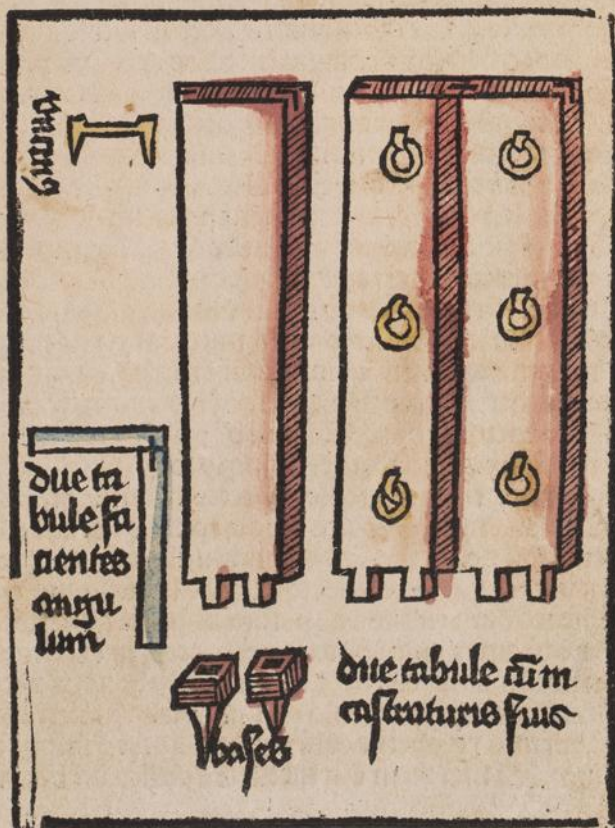 Vncus
due ta
bule fa
cientes
angu
lum
bases
due tabule cũm
castraturis suis